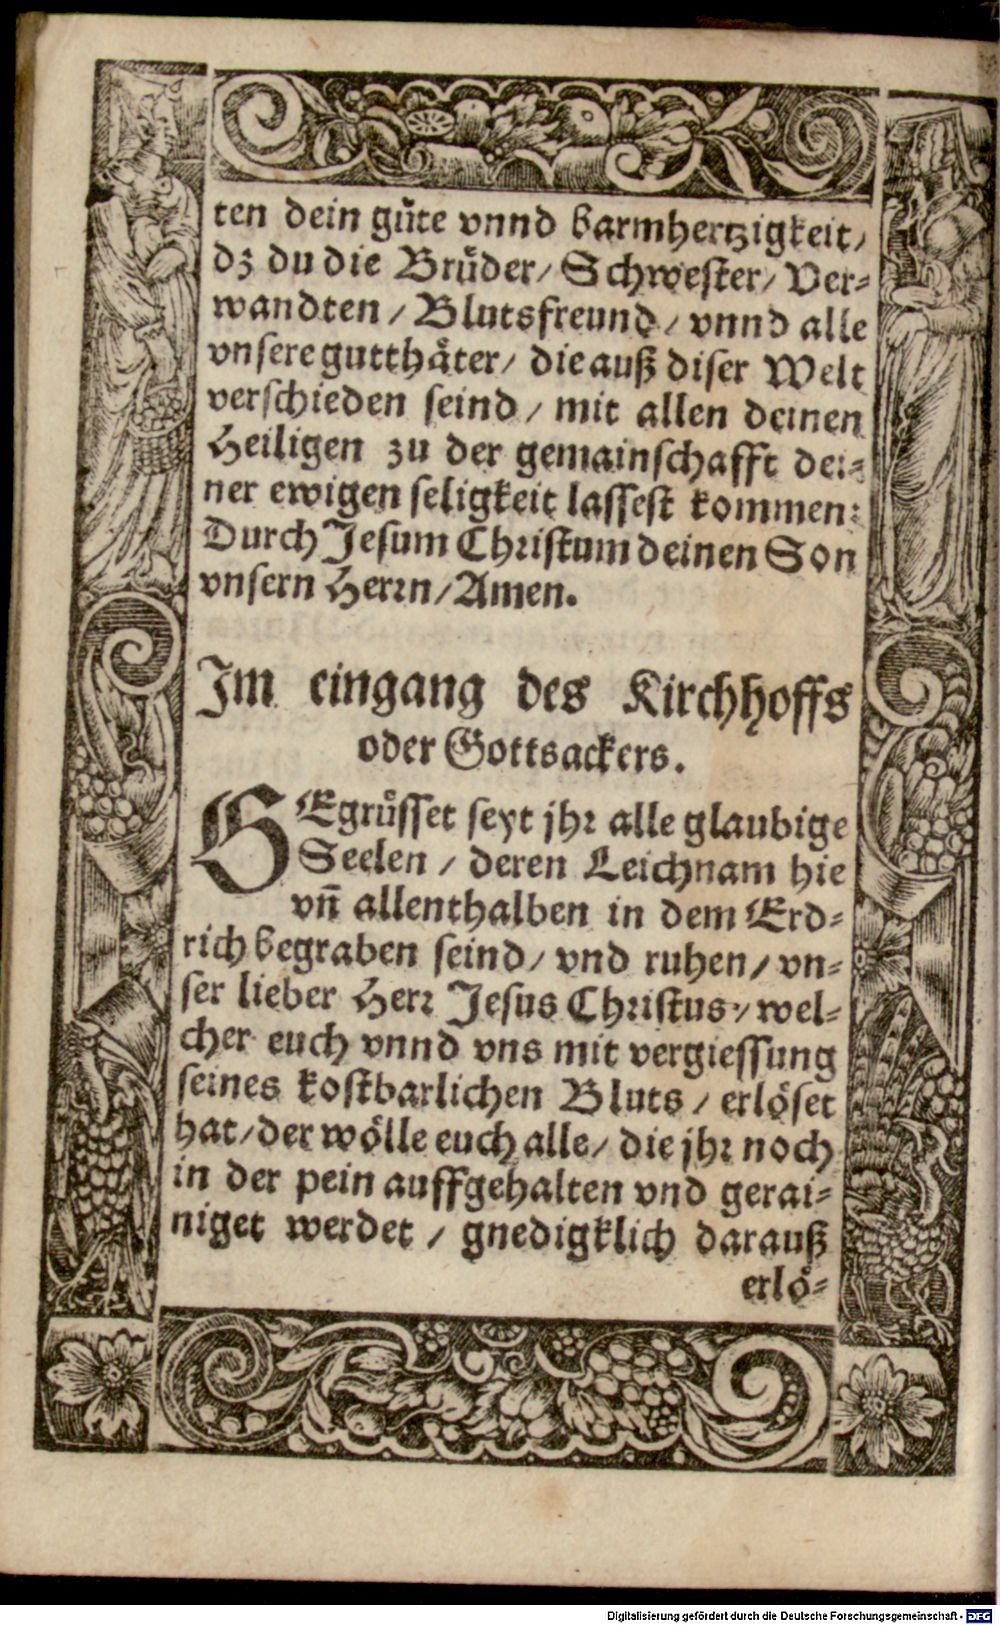 ten dein guͤte vnnd barmhertzigkeit/
dz du die Bruͤder/ Schwester/ Ver⸗
wandten / Blutsfreund / vnnd alle
vnsere gutthaͤter/ die auß diser Welt
verschieden seind / mit allen deinen
Heiligen zu der gemainschafft dei⸗
ner ewigen seligkeit lassest kommen:
Durch Jesum Christum deinen Son
vnsern Herrn/ Amen.
Im eingang des Kirchhoffs
oder Gottsackers.
GEgruͤsset seyt jhr alle glaubige
Seelen / deren Leichnam hie
vñ allenthalben in dem Erd⸗
rich begraben seind/ vnd ruhen/ vn⸗
ser lieber Herr Jesus Christus/ wel⸗
cher euch vnnd vns mit vergiessung
seines kostbarlichen Bluts / erloͤset
hat/ der woͤlle euch alle/ die jhr noch
in der pein auffgehalten vnd gerai⸗
niget werdet / gnedigklich darauß
erloͤ⸗
Digitalisierung gefördert durch die Deutsche Forschungsgemeinschaft - DFG